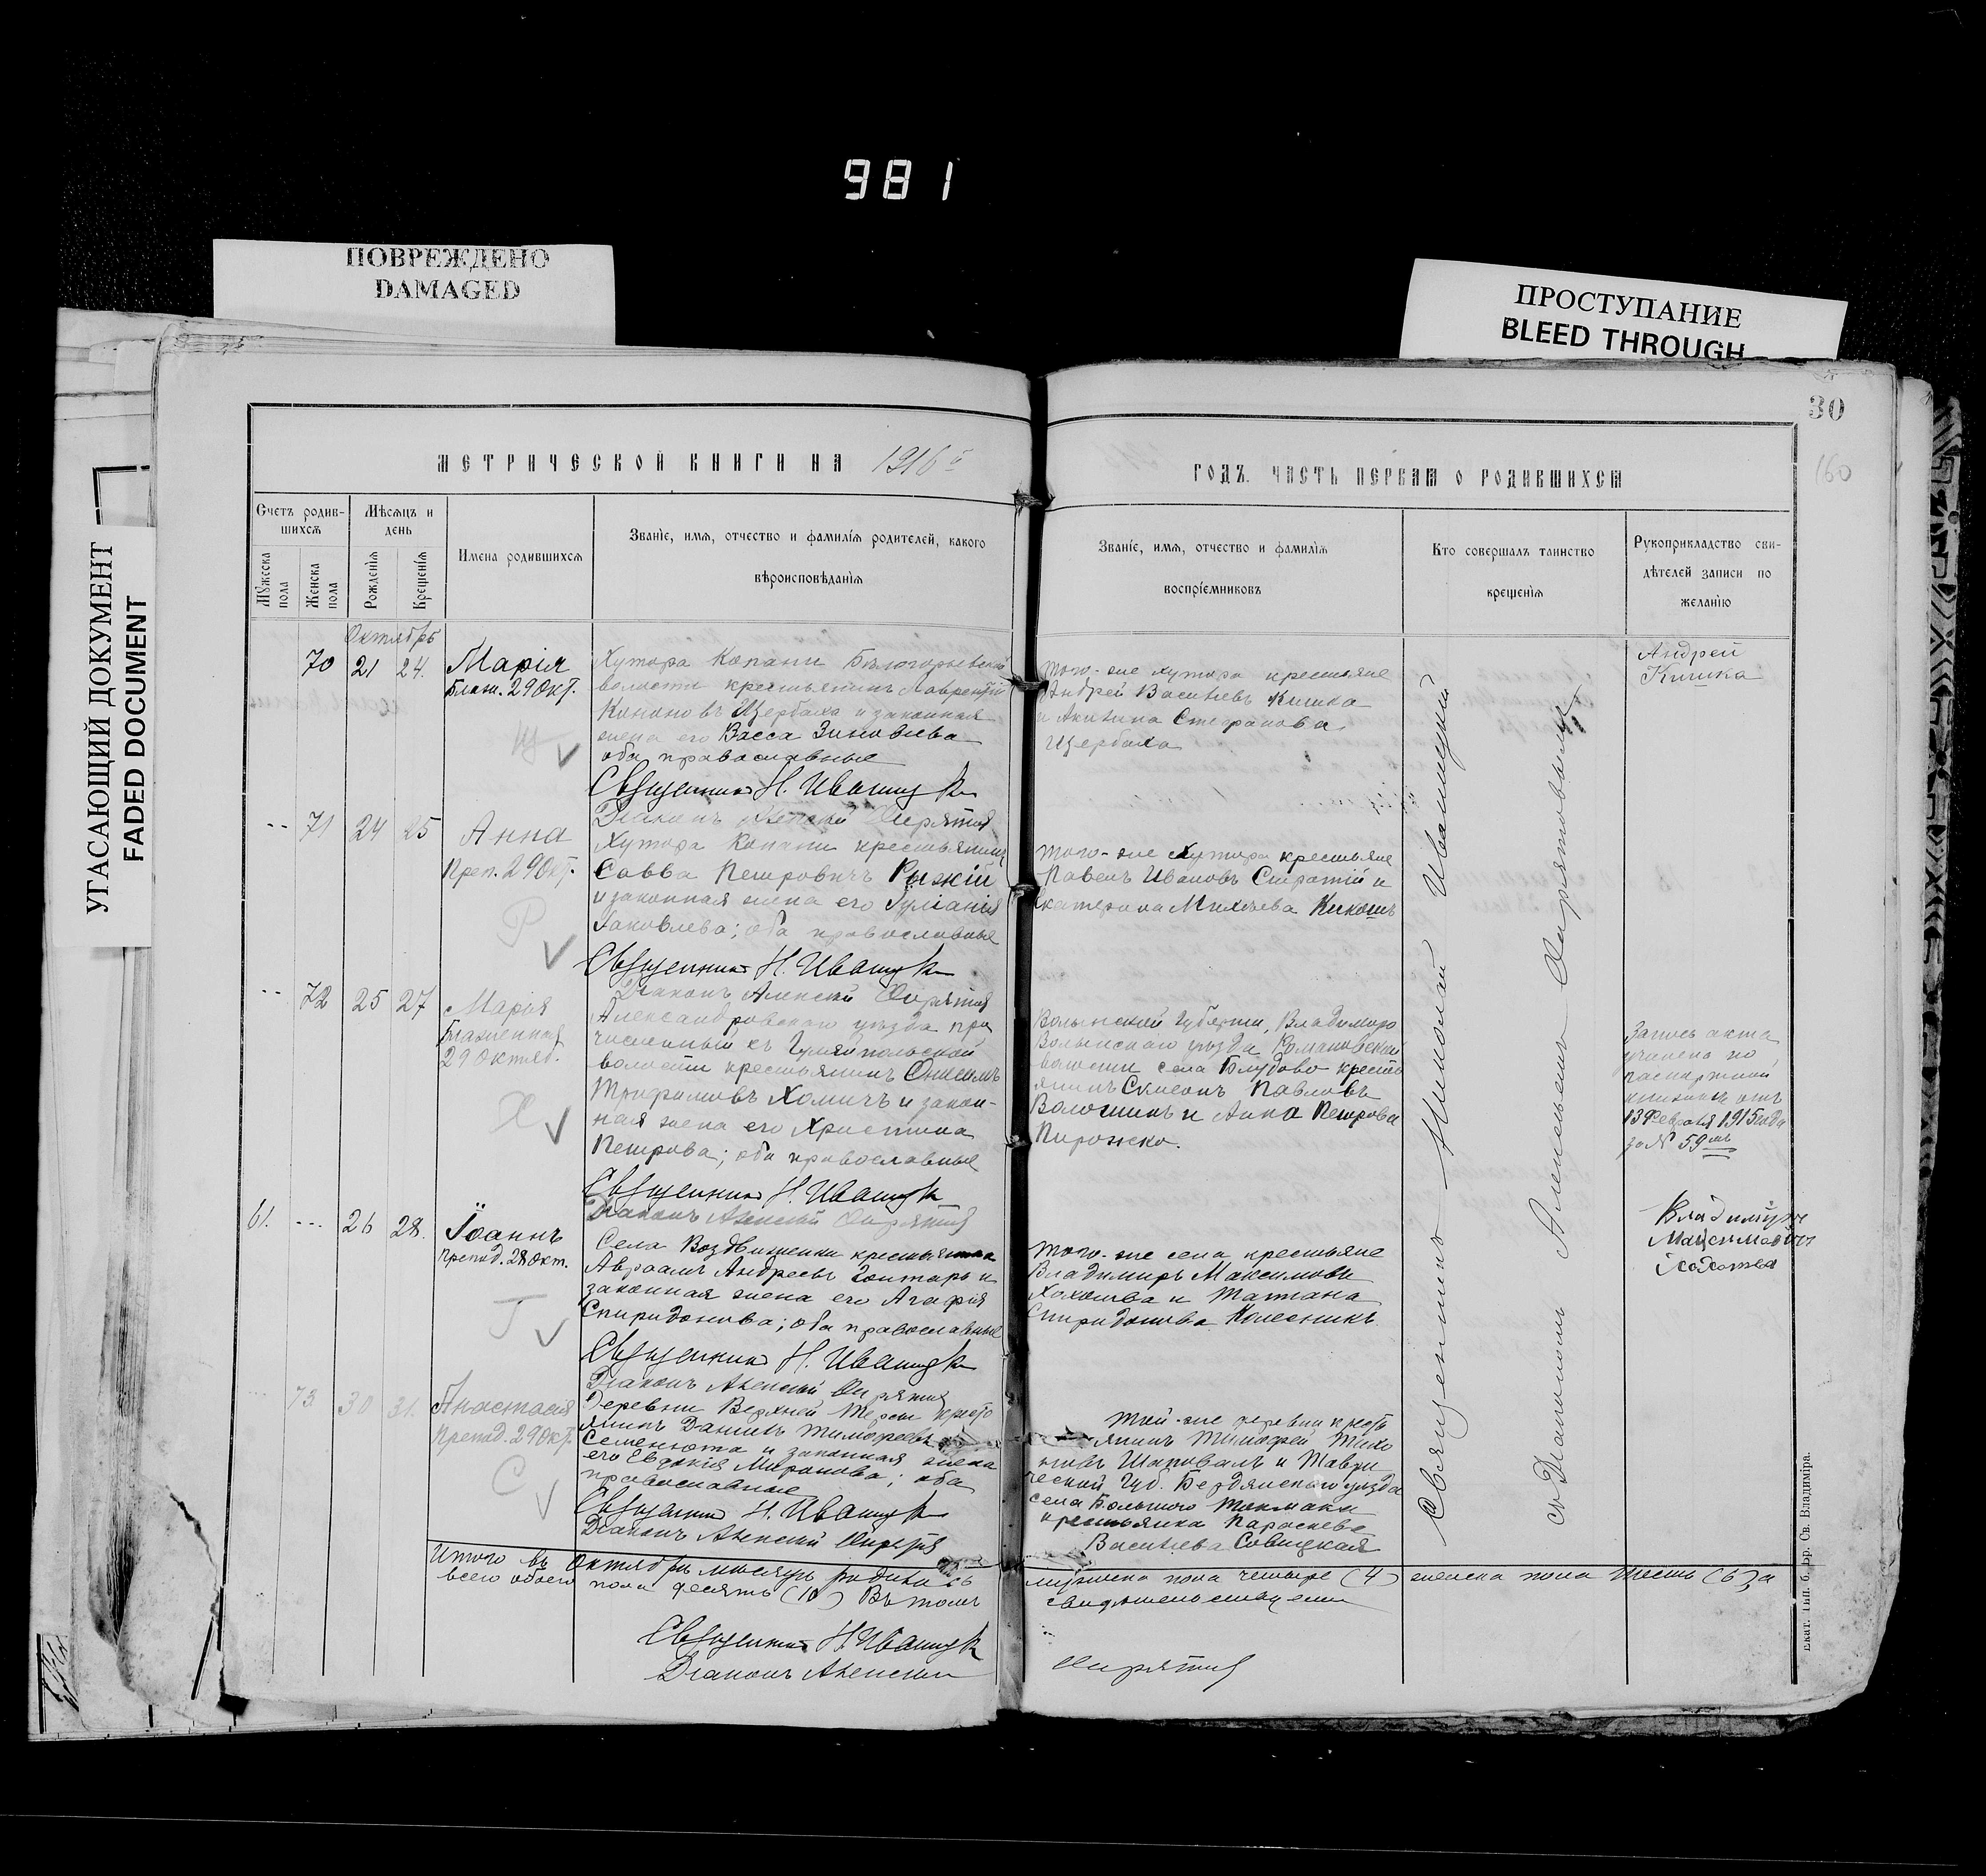 981
ПОВРЕЖДЕНО
DAMAGED
ПРОСТУПАНИЕ
BLEED THROUGH
УГАСАЮЩИЙ ДОКУМЕНТ
FADED DOCUMENT
30
160
МЕТРИЧЕСКОЙ КНИГИ НА 1916 г
ГОДЪ. ЧАСТЬ ПЕРВАЯ О РОДИВШИХСЯ
Счетъ родив-
шихся
Мужеска пола
Женска пола
Мѣсяцъ и
день
Рожденія
Крещенія
Имена родившихся
Званіе, имя, отчество и фамилія родителей, какого
вѣроисповѣданія
Званіе, имя, отчество и фамилія
воспріемниковъ
Кто совершалъ таинство
крещенія
Рукоприкладство сви-
дѣтелей записи по
желанію
Октябрь
70 21 24. Марія
Блаж. 29 Окт.
Хутора Копани Бѣлогорьевской
волости крестьянинъ Лаврентій
Кононовъ Щербаха и законная
жена его Васса Зиновіева
оба православные
Священникъ Н. Иваницк
Діаконъ Алексій Опрятна
того-же хутора крестьяне
Андрей Васильевъ Кишка
и Акилина Стефанова
Щербаха
Андрей
Кишка
Щ
71 24 25 Анна
Преп. 29 Окт.
Хутора Копани крестьянинъ
Савва Петровичъ Рыжій
и законная жена его Іуліанія
Іаковлева; оба православные
Священникъ Н. Иваницк
Діаконъ Алексій Опрятна
того-же Хутора крестьяне
Павелъ Ивановъ Сиротій и
Екатерина Михеева Кикошъ
Р
72 25 27 Марія
Блаженная
29 Октяб.
Александровскаго уѣзда при
численный къ Гуляйпольской
волости крестьянинъ Онисимъ
Трифимовъ Хомичъ и закон-
ная жена его Христина
Петрова; оба православные
Священникъ Н. Иваницк
Діаконъ Алексій Опрятна
Волынской Губерніи, Владимиро
Волынскаго уѣзда
волости села Блудово крестья
янинъ Павловъ
Волошинъ и Анна Петрова
Пирожко.
Запись акта
учинена по
паспортной
книжкѣ отъ
13 Февраля 1915 года
за № 59мъ
Х
61. 26 28. Іоаннъ
препод. 28 Окт.
Села Воздвиженки крестьянинъ
Авраамъ Андреевъ Гонтарь и
законная жена его Агафія
Спиридонова; оба православные
Священникъ Н. Иваницк
Діаконъ Алексій Опрятна
того-же села крестьяне
Владимиръ Максимовъ
Хохотва и Татіана
Спиридонова Колесникъ
Владиміръ
Максимовичъ
Хохотва
Г
73 30 31. Анастасія
препод. 29 Окт.
Деревни Верхней Терсы крестья
янинъ Даніилъ Тимофеевъ
Семенюта и законная жена
его Евдокія Миронова; оба
православные
Священникъ Н. Иваницк
Діаконъ Алексій Опрятна
той-же деревни кресть
янинъ Тимофей Тихо
новъ Шаповалъ и Таври
ческой Губ. Бердянскаго уѣзда
села Большого Токмака
крестьянка Параскева
Васильева Совицкая
С
Священникъ Николай Иваницкій
съ Діакономъ Алексіемъ Опрятовымъ
Итого въ Октябрѣ мѣсяцѣ родилось
всего обоего пола десять (10) Въ томъ
мужеска пола четыре (4) женска пола шесть (6), а
свидѣтельствуемъ
Священникъ Н. Иваницк
Діаконъ Алексій
Опрятна
Екат. Тип. б. бр. Св. Владиміра.